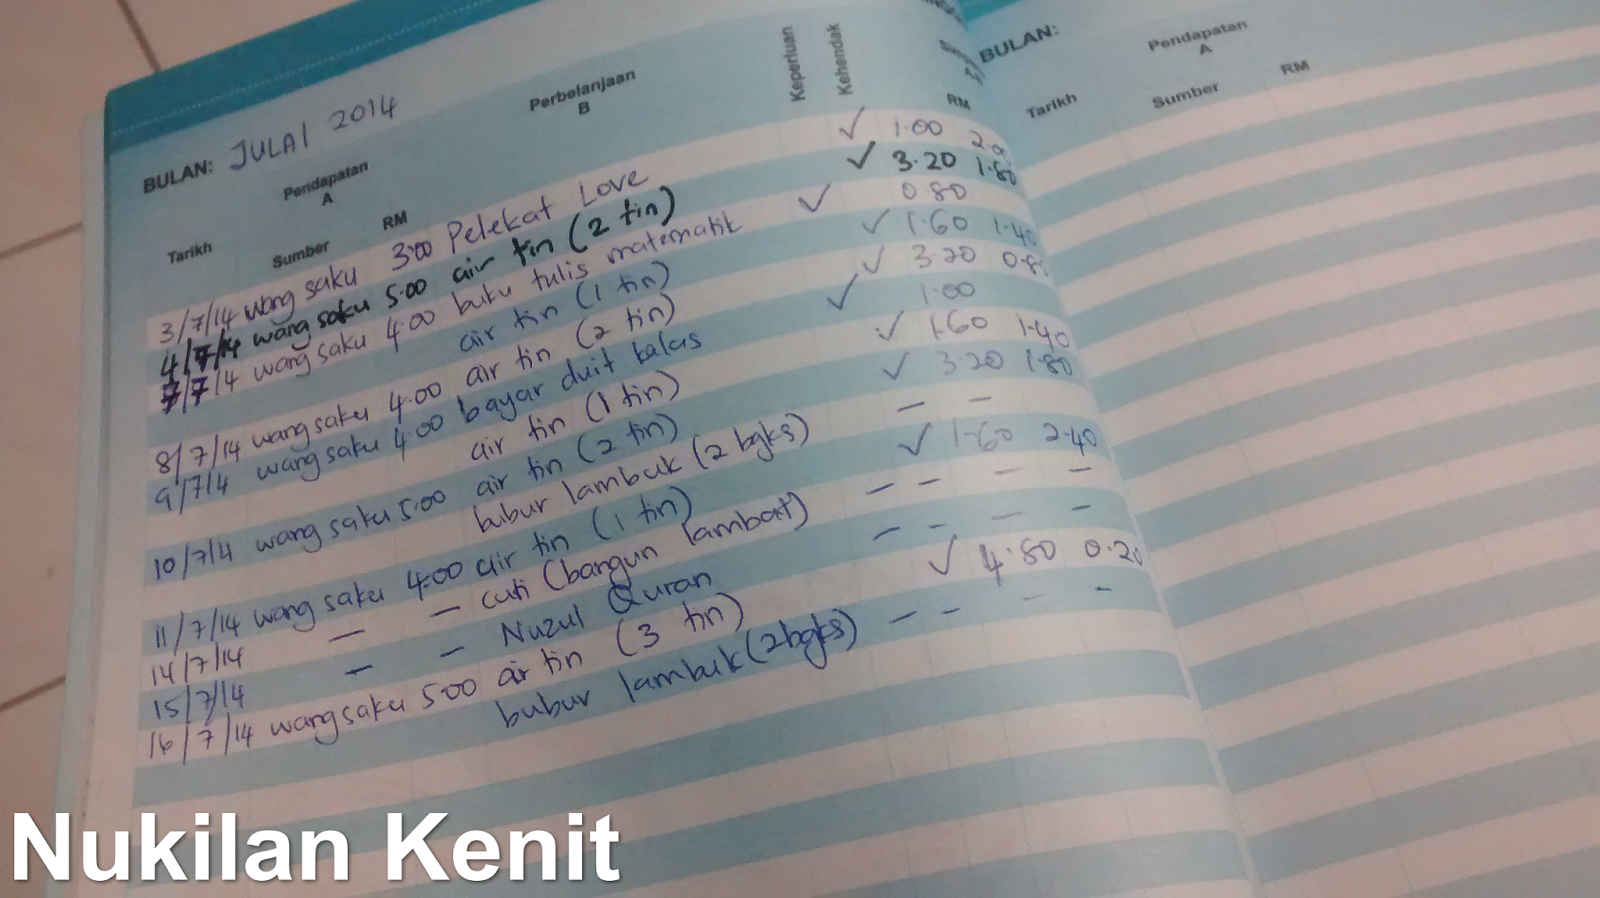 BULAN: JULAI 2014
Pendapatan A
Perbelanjaan B
Keperluan
Kehendak
Tarikh Sumber RM RM
3/7/14 wang saku 3.00 Pelekat Love ✓ 1.00
4/7/14 wang saku 5.00 air tin (2 tin) ✓ 3.20 1.80
7/7/14 wang saku 4.00 buku tulis matematik ✓ 0.80
air tin (1 tin) ✓ 1.60 1.40
8/7/14 wang saku 4.00 air tin (2 tin) ✓ 3.20 0.80
9/7/4 wang saku 4.00 bayar duit kelas ✓ 1.00
air tin (1 tin) ✓ 1.60 1.40
10/7/4 wang saku 5.00 air tin (2 tin) ✓ 3.20 1.80
bubur lambuk (2 bgks) — —
11/7/14 wang saku 4.00 air tin (1 tin) ✓ 1.60 2.40
14/7/14 — — cuti (bangun lambat) — — — —
15/7/14 — — Nuzul Quran — — — —
16/7/14 wang saku 5.00 air tin (3 tin) ✓ 4.80 0.20
bubur lambuk (2bgks) — — — —
BULAN:
Pendapatan A
Tarikh Sumber RM
Nukilan Kenit